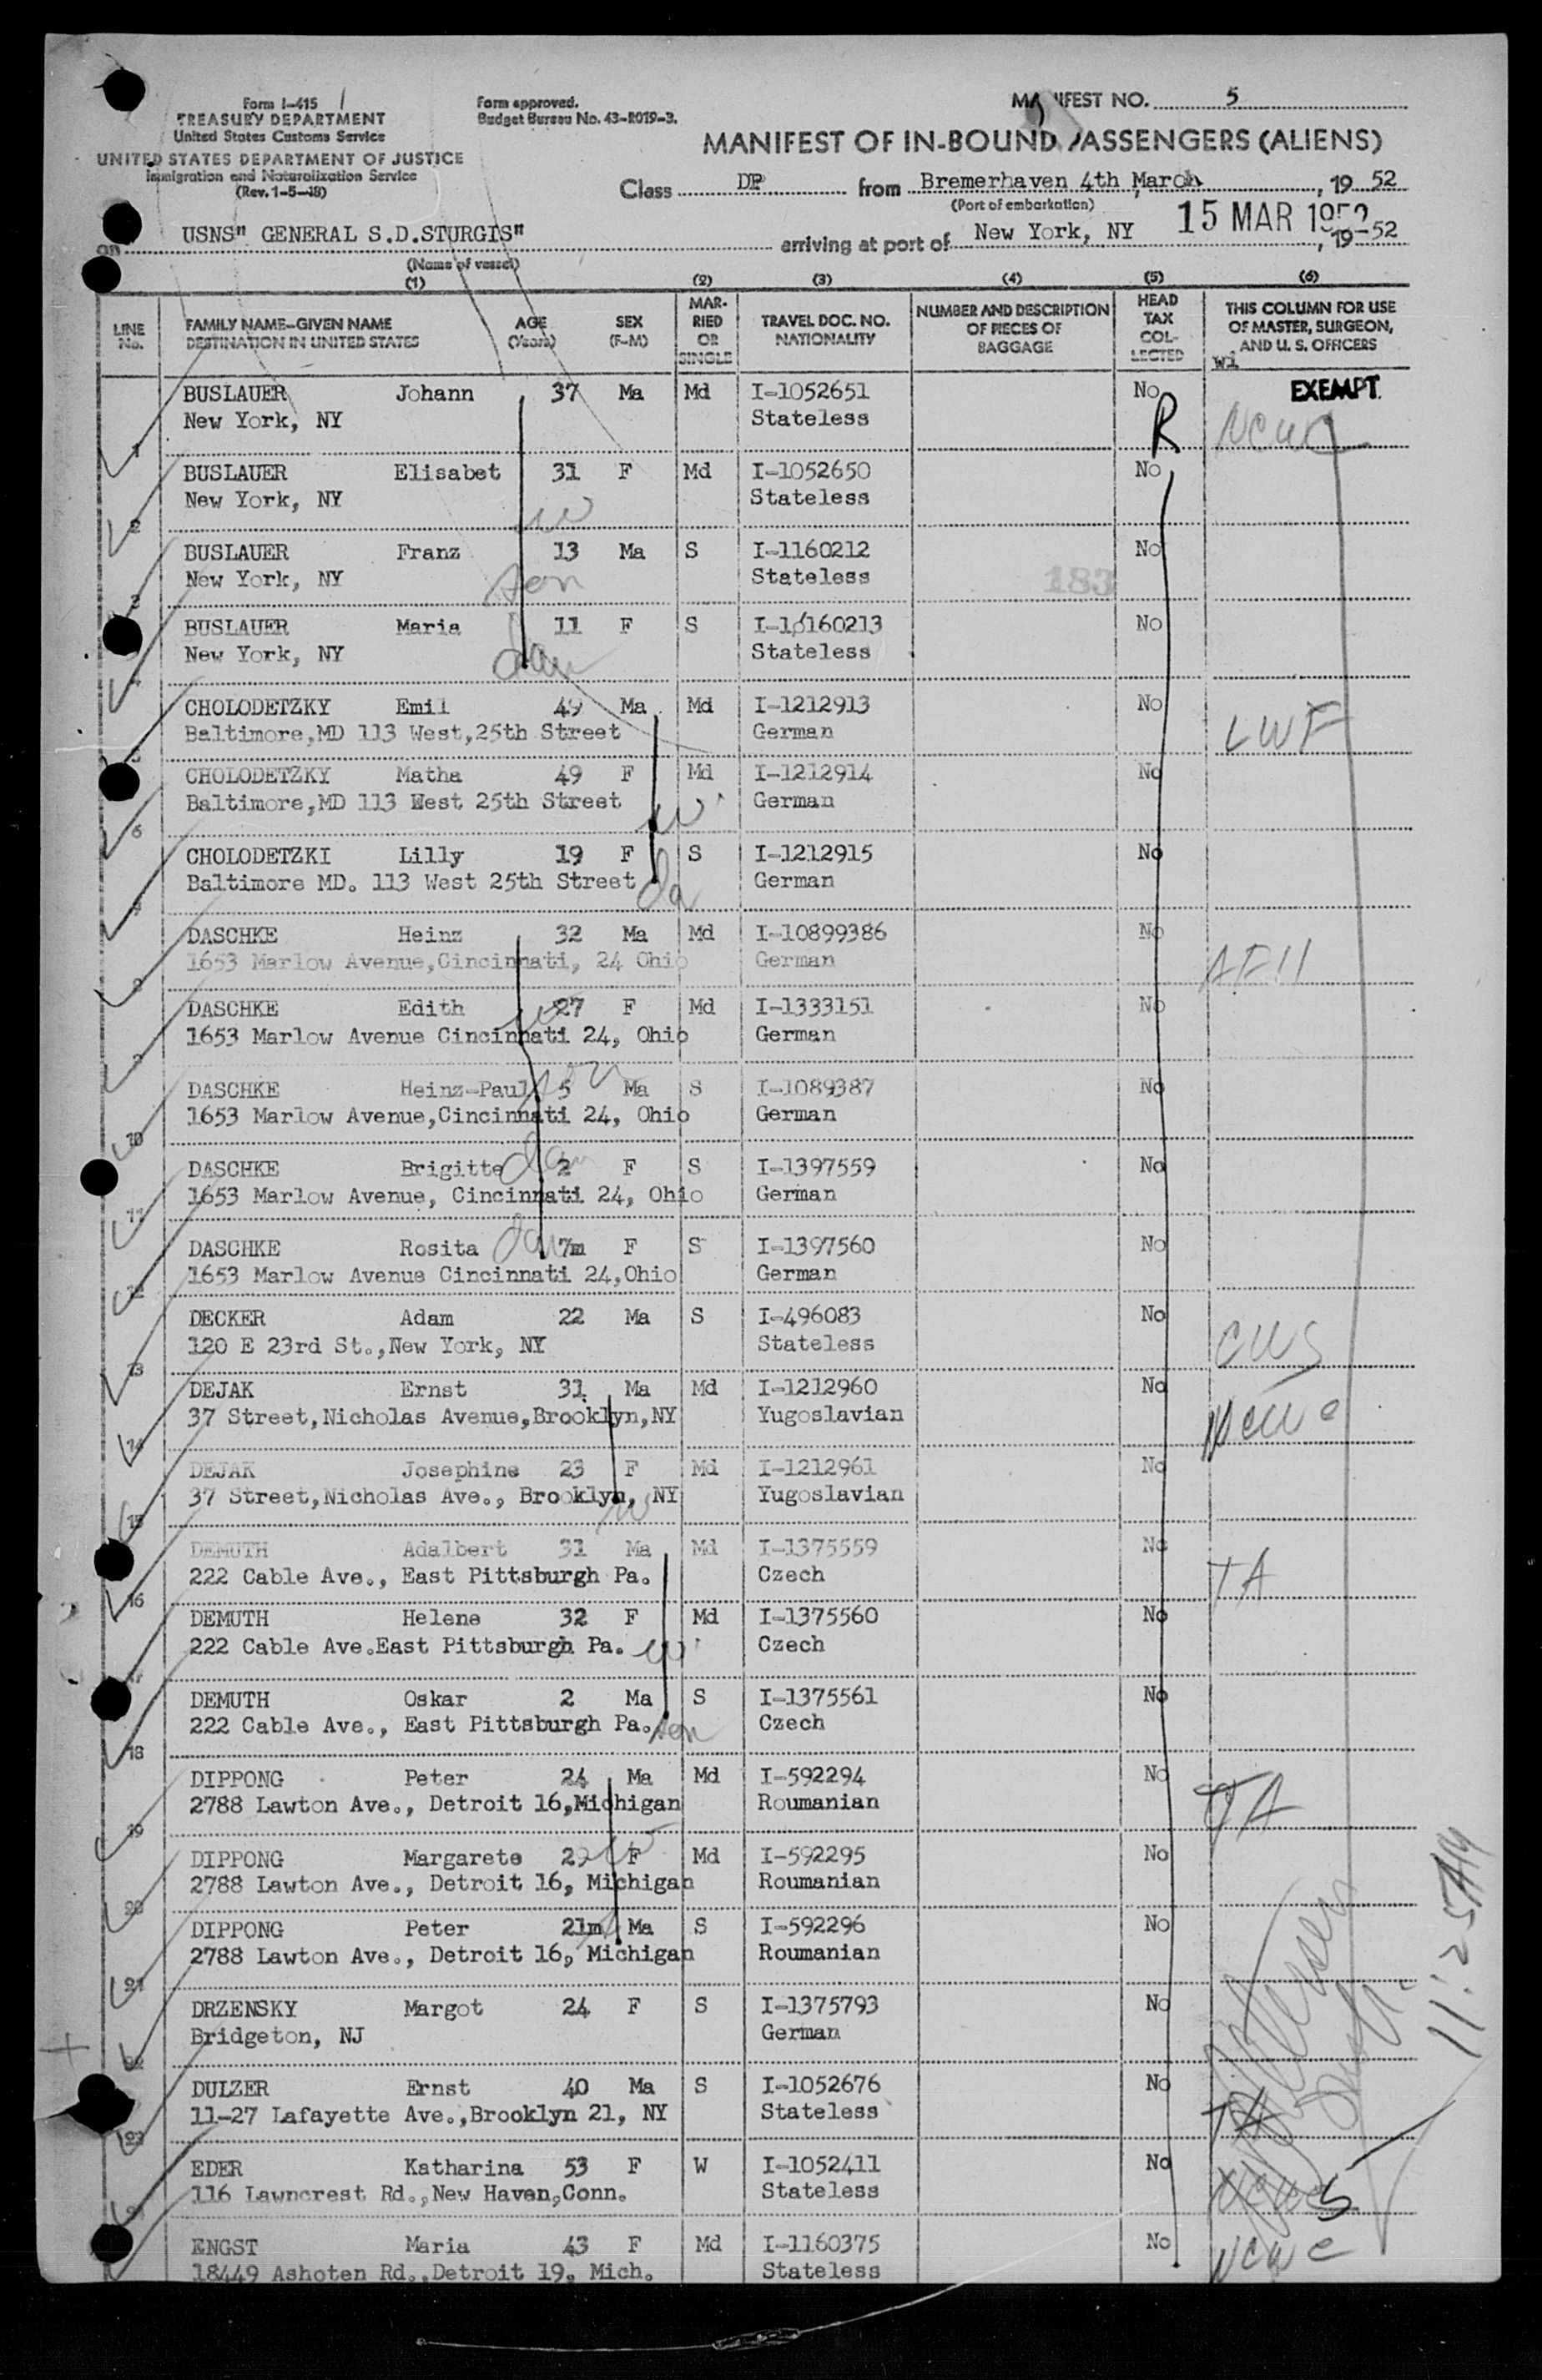 Form I-415
TREASURY DEPARTMENT
United States Customs Service
UNITED STATES DEPARTMENT OF JUSTICE
Immigration and Naturalization Service
(Rev. 1-5-48)
Form approved.
Budget Bureau No. 43-R019-3.
MANIFEST NO. 5
MANIFEST OF IN-BOUND PASSENGERS (ALIENS)
Class DP from Bremerhaven 4th March, 19 52
(Port of embarkation)
on USNS" GENERAL S.D.STURGIS" arriving at port of New York, NY 15 MAR 1952, 19 52
(Name of vessel)
(1) (2) (3) (4) (5) (6)
LINE No. FAMILY NAME-GIVEN NAME DESTINATION IN UNITED STATES AGE (Years) SEX (F-M) MAR-RIED OR SINGLE TRAVEL DOC. NO. NATIONALITY NUMBER AND DESCRIPTION OF PIECES OF BAGGAGE HEAD TAX COL-LECTED THIS COLUMN FOR USE OF MASTER, SURGEON, AND U. S. OFFICERS
wi
BUSLAUER Johann 37 Ma Md I-1052651 No EXEMPT
1 New York, NY Stateless R
BUSLAUER Elisabet 31 F Md I-1052650 No
2 New York, NY Stateless
w
BUSLAUER Franz 13 Ma S I-1160212 No
3 New York, NY son Stateless 183
BUSLAUER Maria 11 F S I-1160213 No
4 New York, NY dau Stateless
CHOLODETZKY Emil 49 Ma Md I-1212913 No
5 Baltimore,MD 113 West,25th Street German LWF
CHOLODETZKY Matha 49 F Md I-1212914 No
6 Baltimore,MD 113 West 25th Street w German
CHOLODETZKI Lilly 19 F S I-1212915 No
7 Baltimore MD. 113 West 25th Street da German
DASCHKE Heinz 32 Ma Md I-10899386 No
8 1653 Marlow Avenue,Cincinnati, 24 Ohio German
DASCHKE Edith 27 F Md I-1333151 No
9 1653 Marlow Avenue Cincinnati 24, Ohio w German
DASCHKE Heinz-Paul 5 Ma S I-1089387 No
10 1653 Marlow Avenue,Cincinnati 24, Ohio son German
DASCHKE Brigitte 2 F S I-1397559 No
11 1653 Marlow Avenue, Cincinnati 24, Ohio dau German
DASCHKE Rosita 7m F S I-1397560 No
12 1653 Marlow Avenue Cincinnati 24,Ohio dau German
DECKER Adam 22 Ma S I-496083 No
13 120 E 23rd St.,New York, NY Stateless CWS
DEJAK Ernst 31 Ma Md I-1212960 No
14 37 Street,Nicholas Avenue,Brooklyn,NY Yugoslavian NCWC
DEJAK Josephine 23 F Md I-1212961 No
15 37 Street,Nicholas Ave., Brooklyn, NY w Yugoslavian
DEMUTH Adalbert 31 Ma Md I-1375559 No
16 222 Cable Ave., East Pittsburgh Pa. Czech TA
DEMUTH Helene 32 F Md I-1375560 No
17 222 Cable Ave.East Pittsburgh Pa. w Czech
DEMUTH Oskar 2 Ma S I-1375561 No
18 222 Cable Ave., East Pittsburgh Pa. son Czech
DIPPONG Peter 24 Ma Md I-592294 No
19 2788 Lawton Ave., Detroit 16,Michigan Roumanian TA
DIPPONG Margarete F Md I-592295 No
20 2788 Lawton Ave., Detroit 16, Michigan w Roumanian
DIPPONG Peter 21m Ma S I-592296 No
21 2788 Lawton Ave., Detroit 16, Michigan Roumanian
DRZENSKY Margot 24 F S I-1375793 No
22 Bridgeton, NJ German
DULZER Ernst 40 Ma S I-1052676 No
23 11-27 Lafayette Ave.,Brooklyn 21, NY Stateless TA
EDER Katharina 53 F W I-1052411 No
24 116 Lawncrest Rd.,New Haven,Conn. Stateless
ENGST Maria 43 F Md I-1160375 No
18449 Ashoten Rd.,Detroit 19, Mich. Stateless NCWC
11:25AM